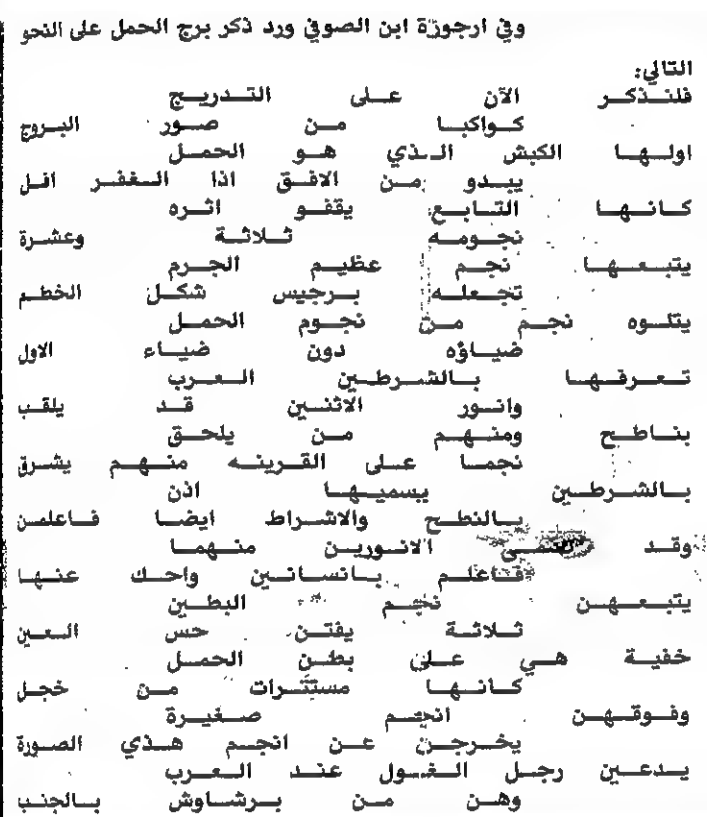 وفي ارجوزة ابن الصوفي ورد ذكر برج الحمل على النحو
التالي:
فلنذكر الآن على التدريج
كواكبا من صور البروج
اولها الكبش الذي هو الحمل
يبدو من الافق اذا الغفر افل
كانها التابع يقفو اثره
نجومه ثلاثة وعشرة
يتبعها نجم عظيم الجرم
تجعله برجيس شكل الخطم
يتلوه نجم من نجوم الحمل
ضياؤه دون ضياء الاول
تعرفها بالشرطين العرب
وانور الاثنين قد يلقب
بناطح ومنهم من يلحق
نجما على القرينه منهم يشرق
بالشرطين يسميها اذن
بالنطح والاشراط ايضا فاعلمن
وقد الانورين منهما
فاعلم بانسانين واحك عنها
يتبعهن نجم البطين
ثلاثة يفتن حس العين
خفية هي على بطن الحمل
كانها مستترات من خجل
وفوقهن انجم صغيرة
يخرجن عن انجم هذي الصورة
يدعين رجل الغول عند العرب
وهن من برشاوش بالجنب